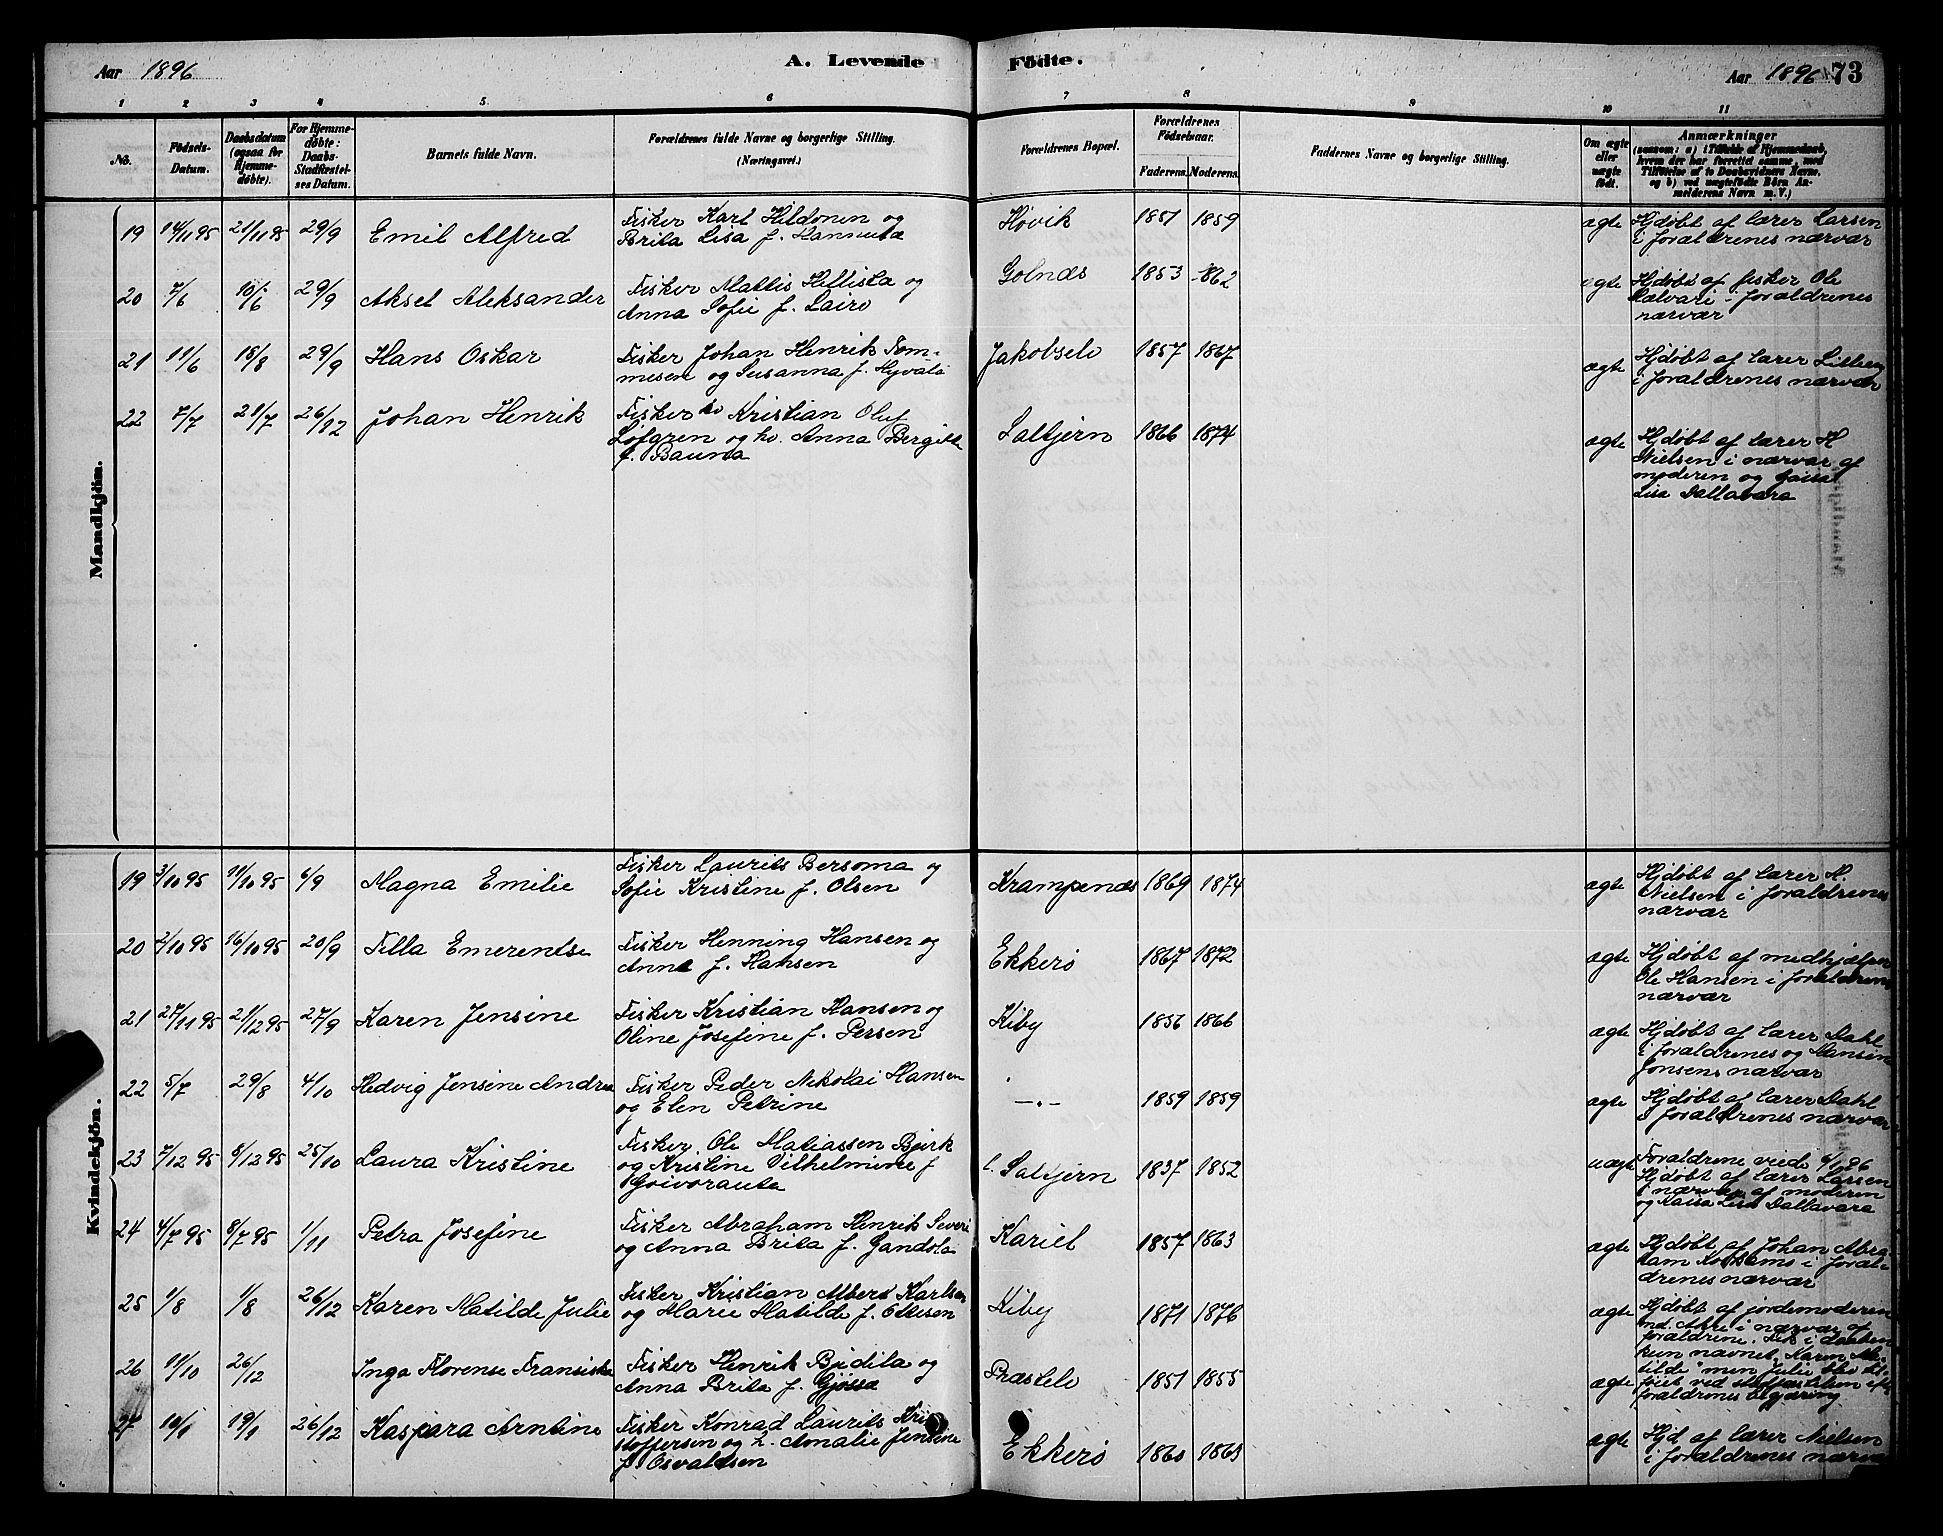 Aar 1896
A. Levende
Födte.
Aar 1896
73
1 2 3 4 5 6 7 8 9 10 11
No.
Födsels-Datum.
Daabsdatum
(ogsaa for
Hjemme-
døbte).
For Hjemme-
døbte:
Daabs-
Stadfæstel-
ses Datum.
Barnets fulde Navn.
Forældrenes fulde Navne og borgerlige Stilling.
(Næringsvei.)
Forældrenes Bopæl.
Forældrenes
Födselsaar.
Faderens. Moderens.
Faddernes Navne og borgerlige Stilling.
Om ægte
eller
uægte
födt.
Anmærkninger
(saasom: a) i Tilfælde af Hjemmedaab,
hvem der har forrettet samme, med
Tilföielse af to Daabsvidners Navne,
og b) ved uægtefödte Börn An-
melderens Navn m. V.)
Mandkjön.
19 14/11 95 21/11 95 29/9 Emil Alfred
Fisker Karl Hildonen og
Brita Lisa f. Hannula
Høvik 1851 1859
ægte
Hjdøbt af lærer Larsen
i foraldrenes nærvær
20 7/6 10/6 29/9 Aksel Aleksander
Fisker Mattis Hellista og
Anna Sofie f. Lairo
Golnæs 1853 1862
ægte
Hjdøbt af fisker Ole
i foraldrenes
nærvær
21 11/6 15/8 29/9 Hans Oskar
Fisker Johan Henrik Tom-
mesen og Susanna f. Hyvala
Jakobselv 1857 1867
ægte
Hjdøbt af lærer Lilberg
i foraldrenes nærvær
22 7/7 21/7 26/12 Johan Henrik
Fisker Kristian Oluf
Løfgren og hv. Anna Bergitte
f. Bauna
Saltjern 1866 1874
ægte
Hjdøbt af lærer H.
Nielsen i nærvær af
moderen og Kaisa
Lisa Dallavara
Kvindekjön.
19 3/10 95 11/10 95 6/9 Magna Emilie
Fisker Laurits Bersoma og
Sofie Kristine f. Olsen
Krampenæs 1869 1874
ægte
Hjdøbt af lærer H.
Nielsen i foraldrenes
nærvær
20 2/10 95 16/10 95 20/9 Tilla Emerentse
Fisker Henning Hansen og
Anna f. Hansen
Ekkerø 1867 1872
ægte
Hjdøbt af medhjælper
Ole Hansen i foraldrenes
nærvær
21 27/11 95 21/12 95 27/9 Karen Jensine
Fisker Kristian Hansen og
Oline Josefine f. Persen
Kiby 1856 1866
ægte
Hjdøbt af lærer Dahl
i foraldrenes og Hansine
Jonsens nærvær
22 5/7 29/8 4/10 Hedvig Jensine Andrea
Fisker Peder Nikolai Hansen
og Elen Petrine
—„— 1859 1859
ægte
Hjdøbt af lærer Dahl
i foraldrenes nærvær
23 7/12 95 8/12 95 25/10 Laura Kristine
Fisker Ole Matiassen Bjørk
og Kristine Vilhelmine f.
Goivoranta
l. Saltjern 1837 1852
uægte
Foraldrene viede 6/1 96
Hjdøbt af lærer Larsen
i nærvær af moderen
og Kaisa Lisa Dallavara
24 4/7 95 8/7 95 1/11 Petra Josefine
Fisker Abraham Henrik Severi
og Anna Brita f. Gandola
Kariel 1857 1863
ægte
Hjdøbt af Johan Abra-
ham i foræl-
drenes nærvær
25 1/8 1/8 26/12 Karen Matilde Julie
Fisker Kristian Albert Karlsen
og Marie Matilde f. Ottesen
Kiby 1871 1876
ægte
Hjdøbt af jordemoderen
i nærvær af
foraldrene. Fik i daaben
kun navnet „Karen Ma-
tilde" men Julie blev til-
føiet ved stadfæstelsen efter
foraldrenes begjæring
26 11/10 26/12 Inga Florense Fransiska
Fisker Henrik Bjedila og
Anna Brita f. Gjøssa
Præstelv 1851 1855
ægte
27 10/1 19/1 26/12 Kaspara Arntine
Fisker Konrad Laurits Kri-
stoffersen og h. Amalie Jensine
f. Osvaldsen
Ekkerø 1860 1869
ægte
Hjd. af lærer Nielsen
i foraldrenes nærvær